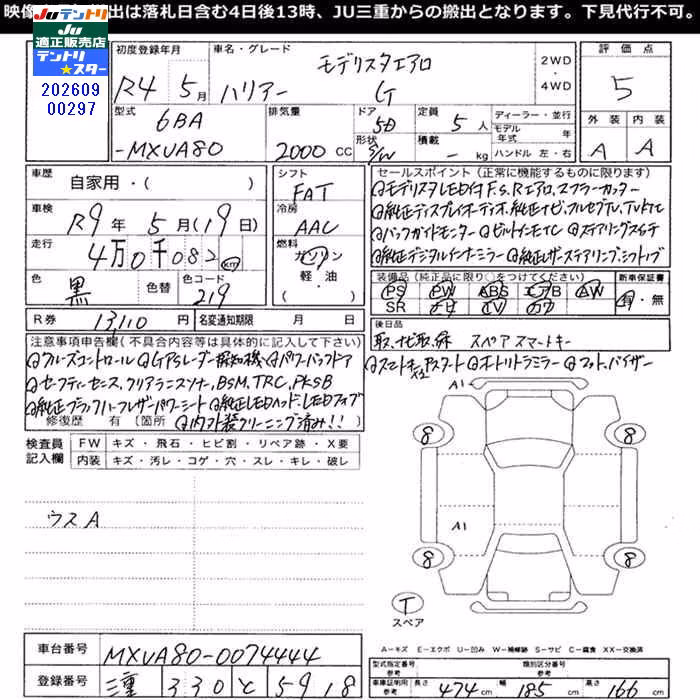 映像 出は落札日含む4日後13時、JU三重からの搬出となります。下見代行不可。
JU テントリ
JU
適正販売店
テントリ
★スター
202609
00297
初度登録年月 車名・グレード 評価点
モデリスタエアロ 2WD
・
4WD
R4 5月 ハリアー G 5
型式 排気量 ドア 定員 ディーラー・並行 外装 内装
6BA 5D 5人 モデル年式 年
-MXUA80 2000CC 形状 S/W 積載 -kg ハンドル 左・右 A A
車歴 自家用・( ) シフト FAT セールスポイント(正常に機能するものに限ります)
モデリスタLED付F.S.Rエアロ、マフラーカッター
車検 R9年5月(19日) 冷房 AAC
純正ディスプレイオーディオ、純正ナビ、フルセグTV、
バックガイドモニター ビルトインETC ステアリングスイッチ
走行 4万0千082 km 燃料 ガソリン
軽・油
純正デジタルインナーミラー 純正レザーステアリング、シフトノブ
色 黒 色替 色コード 219
装備品(純正品に限り○をつけてください) 新車保証書
PS PW ABS エアB AW 有・無
SR カワ TV ナビ
R券 13110円 名変通知期限 月 日
後日品
取、ナビ取、保 スペアスマートキー
注意事項申告欄(不具合内容等は具体的に記入して下さい)
クルーズコントロール GPSレーダー探知機 パワーバックドア
スマートキー Pスタート オートリトラミラー フロアマット、バイザー
セーフティーセンス、クリアランスソナー、BSM、TRC、PKSB
純正ブラックハーフレザーパワーシート 純正LEDヘッド、LEDフォグ
修復歴 有(箇所 内外装クリーニング済み!!)
検査員記入欄 FW キズ・飛石・ヒビ割・リペア跡・X要
内装 キズ・汚レ・コゲ・穴・スレ・キレ・破レ
ウスA
A1
8 8
A1
8 8
T
スペア
A-キズ E-エクボ U-凹み W-補修跡 S-サビ C-腐食 XX-交換済
車台番号 MXUA80-0074444
型式指定番号 参考 類別区分番号 参考
登録番号 三重 330 と 5918
車庫証明用 参考 長さ 474cm 幅 185cm 高さ 166cm